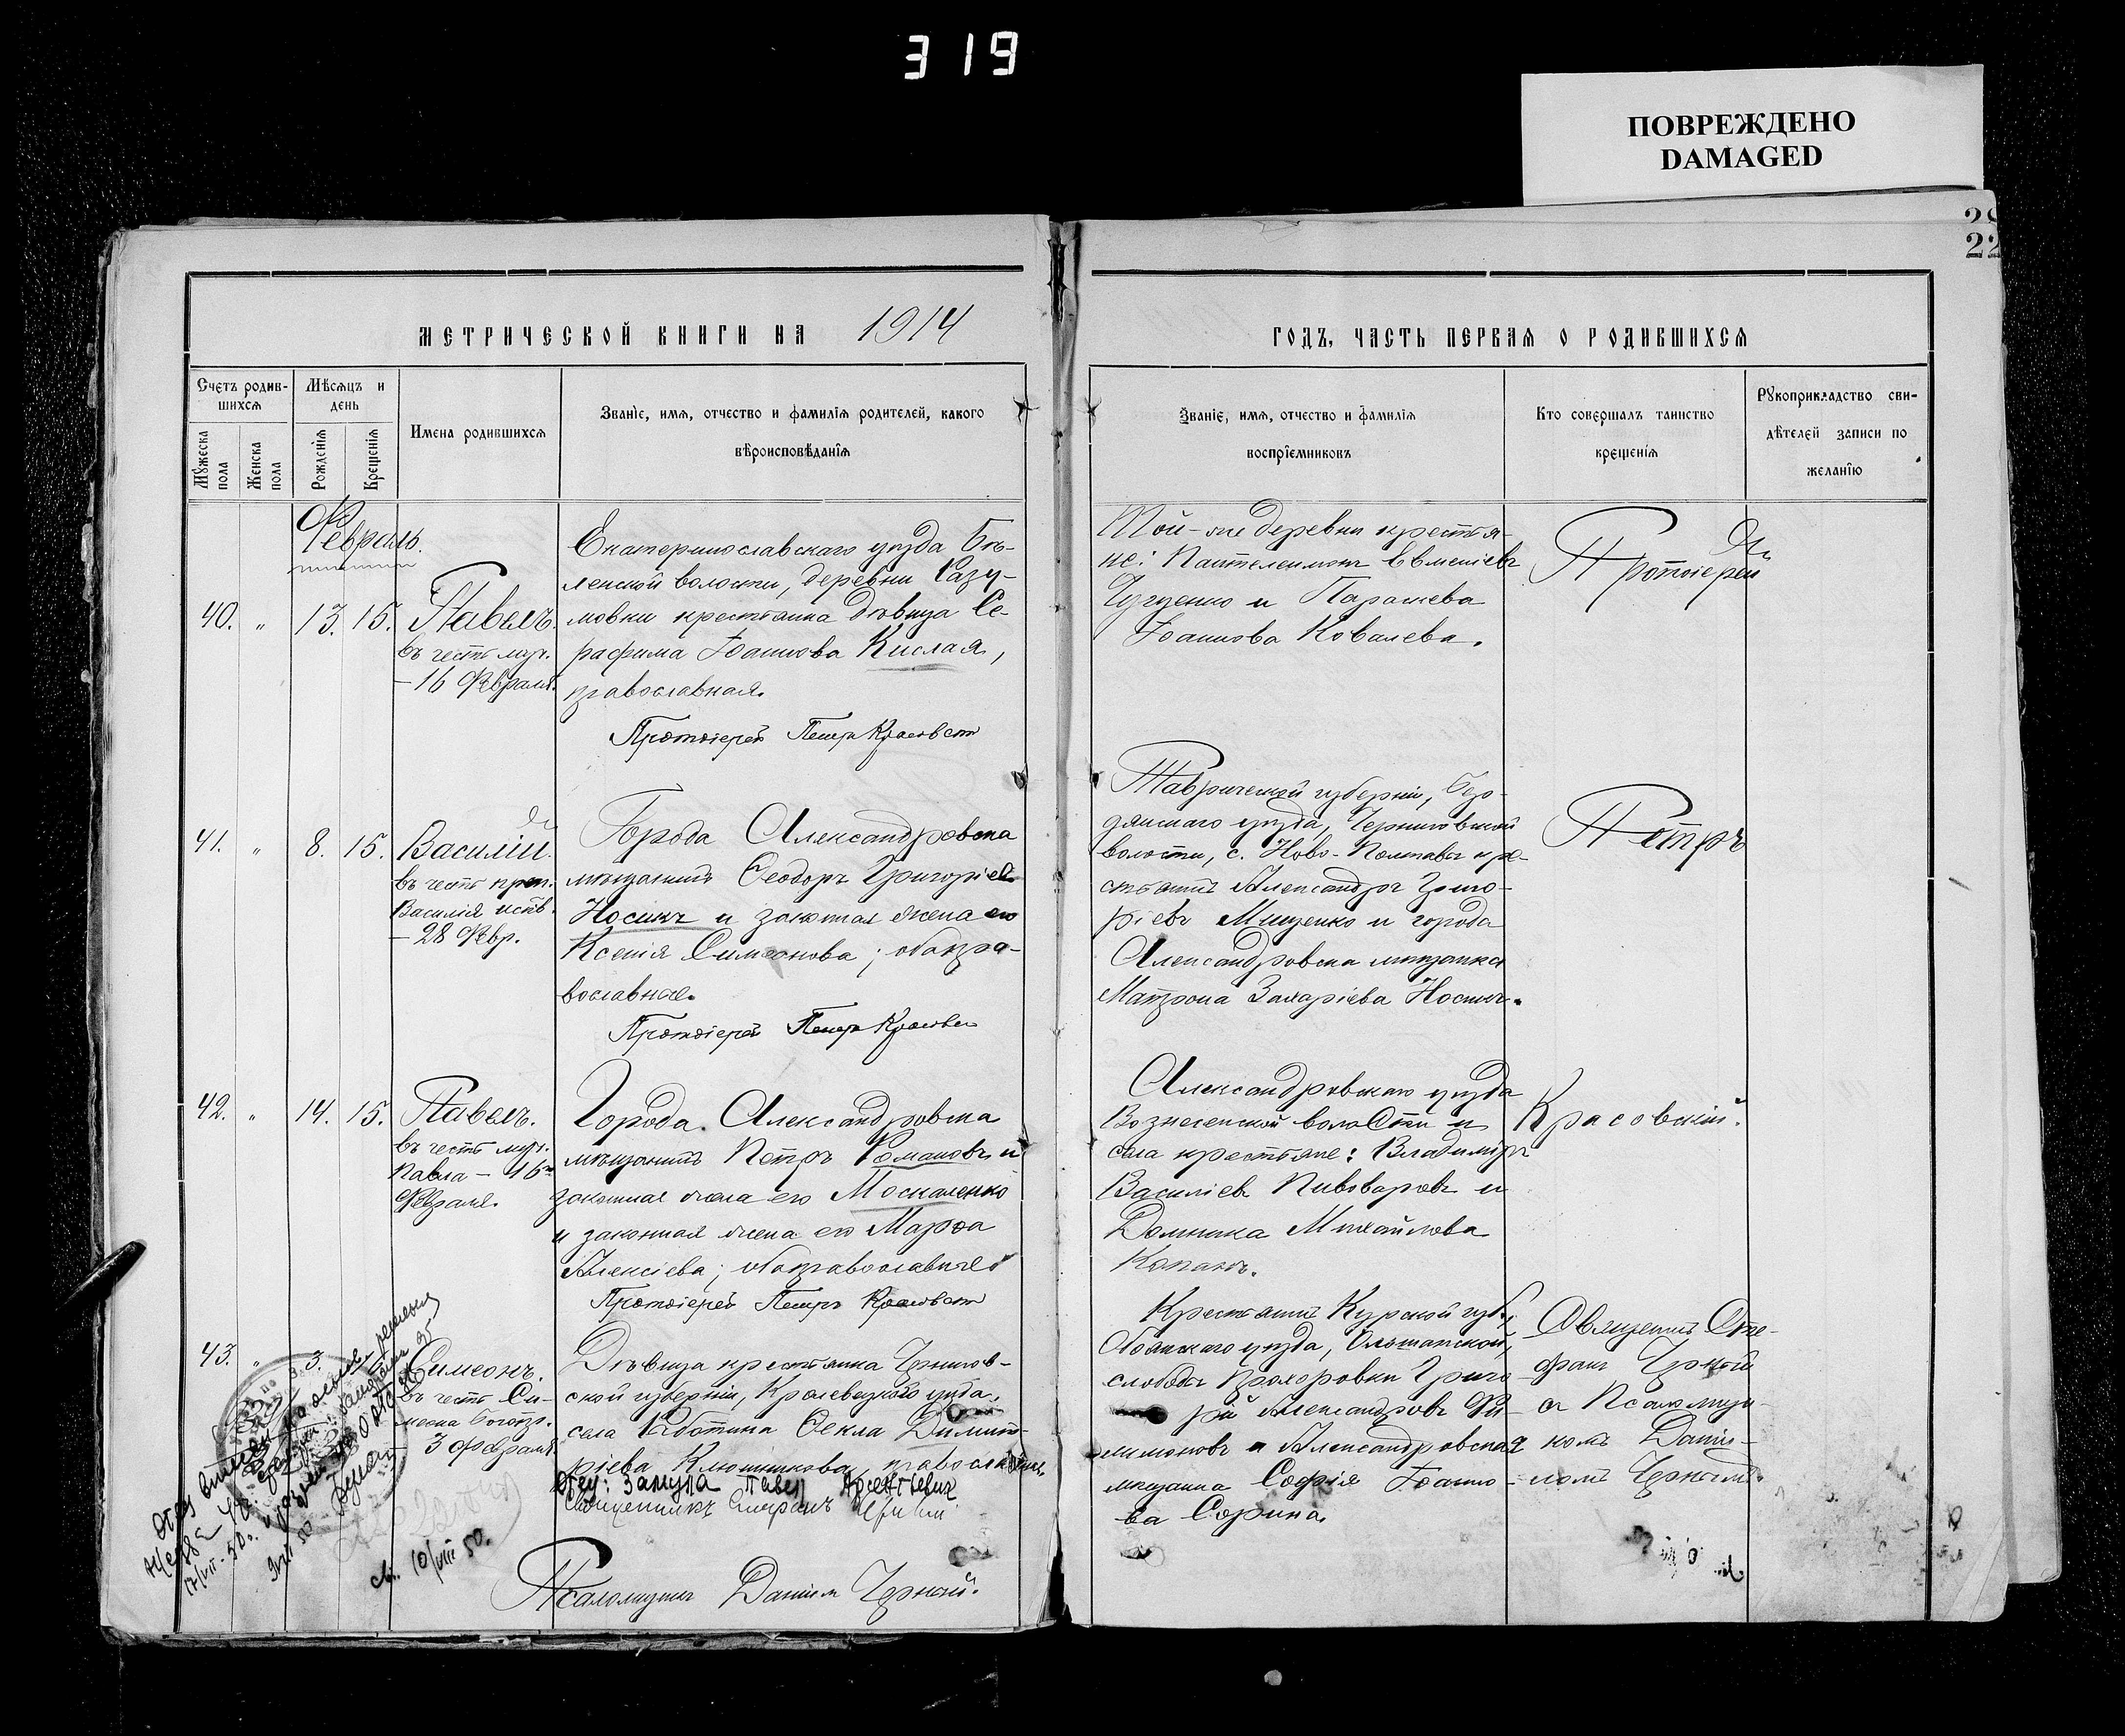 319
ПОВРЕЖДЕНО
DAMAGED
22
МЕТРИЧЕСКОЙ КНИГИ НА 1914
ГОДЪ, ЧАСТЬ ПЕРВАЯ О РОДИВШИХСЯ
Счетъ родив-
шихся
Мужеска пола
Женска пола
Мѣсяцъ и
день
Рожденія
Крещенія
Имена родившихся
Званіе, имя, отчество и фамилія родителей, какого
вѣроисповѣданія
Званіе, имя, отчество и фамилія
воспріемниковъ
Кто совершалъ таинство
крещенія
Рукоприкладство сви-
дѣтелей записи по
желанію
Февраль.
40. " 13. 15. Павелъ.
въ честь муч.
- 16 Февраля.
Екатеринославскаго уѣзда Бѣ-
ленской волости, деревни Разу-
мовки крестьянка дѣвица Се-
рафима Іоаннова Кислая,
православная.
Протоіерей Петръ Красовскій
Той-же деревни крестья-
не: Пантелеимонъ Евменіевъ
и Параскева
Іоаннова Ковалева.
Протоіерей
41. " 8. 15. Василій.
въ честь преп.
Василія исп.
- 28 Февр.
Города Александровска
мѣщанинъ Ѳеодоръ Григоріевъ
Носикъ и законная жена его
Ксенія Симеонова; оба пра-
вославные.
Протоіерей Петръ Красовскій
Таврической губерніи, Бер-
дянскаго уѣзда, Черниговской
волости, с. Ново-Полтавки кре-
стьянинъ Александръ Григо-
ріевъ Мищенко и города
Александровска мѣщанка
Матрона Захаріева Носикъ.
Петръ
42. " 14. 15. Павелъ.
въ честь муч.
Павла - 16
Февраля.
Города Александровска
мѣщанинъ Петръ Романовъ и
законная жена его Москаленко
и законная жена его Марѳа
Алексіева; оба православные
Протоіерей Петръ Красовскій
Александровскаго уѣзда
Вознесенской волости и
села крестьяне: Владиміръ
Василіевъ Пивоваровъ и
Домника Михайлова
Копанъ.
Красовскій.
43. " 3. Симеонъ.
въ честь Си-
меона Богопр.
- 3 Февраля
Дѣвица крестьянка Чернигов-
ской губерніи, Кролевецкаго уѣзда,
села Ѳекла Димит-
ріева Ключникова, православная.
Отец: Закула Павел Арсентьевич
Священникъ Стефанъ Черный
Псаломщикъ Даніилъ Черный.
Крестьянинъ Курской губ.,
Обоянскаго уѣзда,
слободы Прохоровки Григо-
рій Александровъ Фи-
лимоновъ и Александровская
мѣщанка Софія Іоанно-
ва Сорина.
Священникъ Сте-
фанъ Черный
съ Псаломщи-
комъ Даніи-
ломъ Чернымъ.
10/VIII 50.